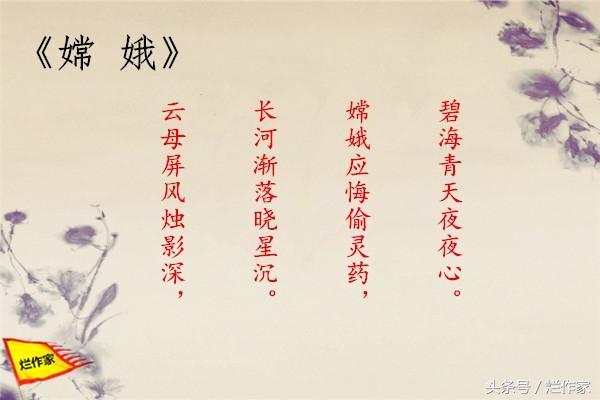 《嫦 娥》
云母屏风烛影深，
长河渐落晓星沉。
嫦娥应悔偷灵药，
碧海青天夜夜心。
烂作家
头条号/烂作家